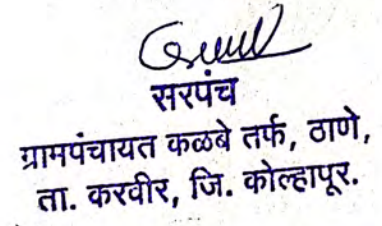 सरपंच
ग्रामपंचायत कळबे तर्फ, ठाणे,
ता. करवीर, जि. कोल्हापूर.